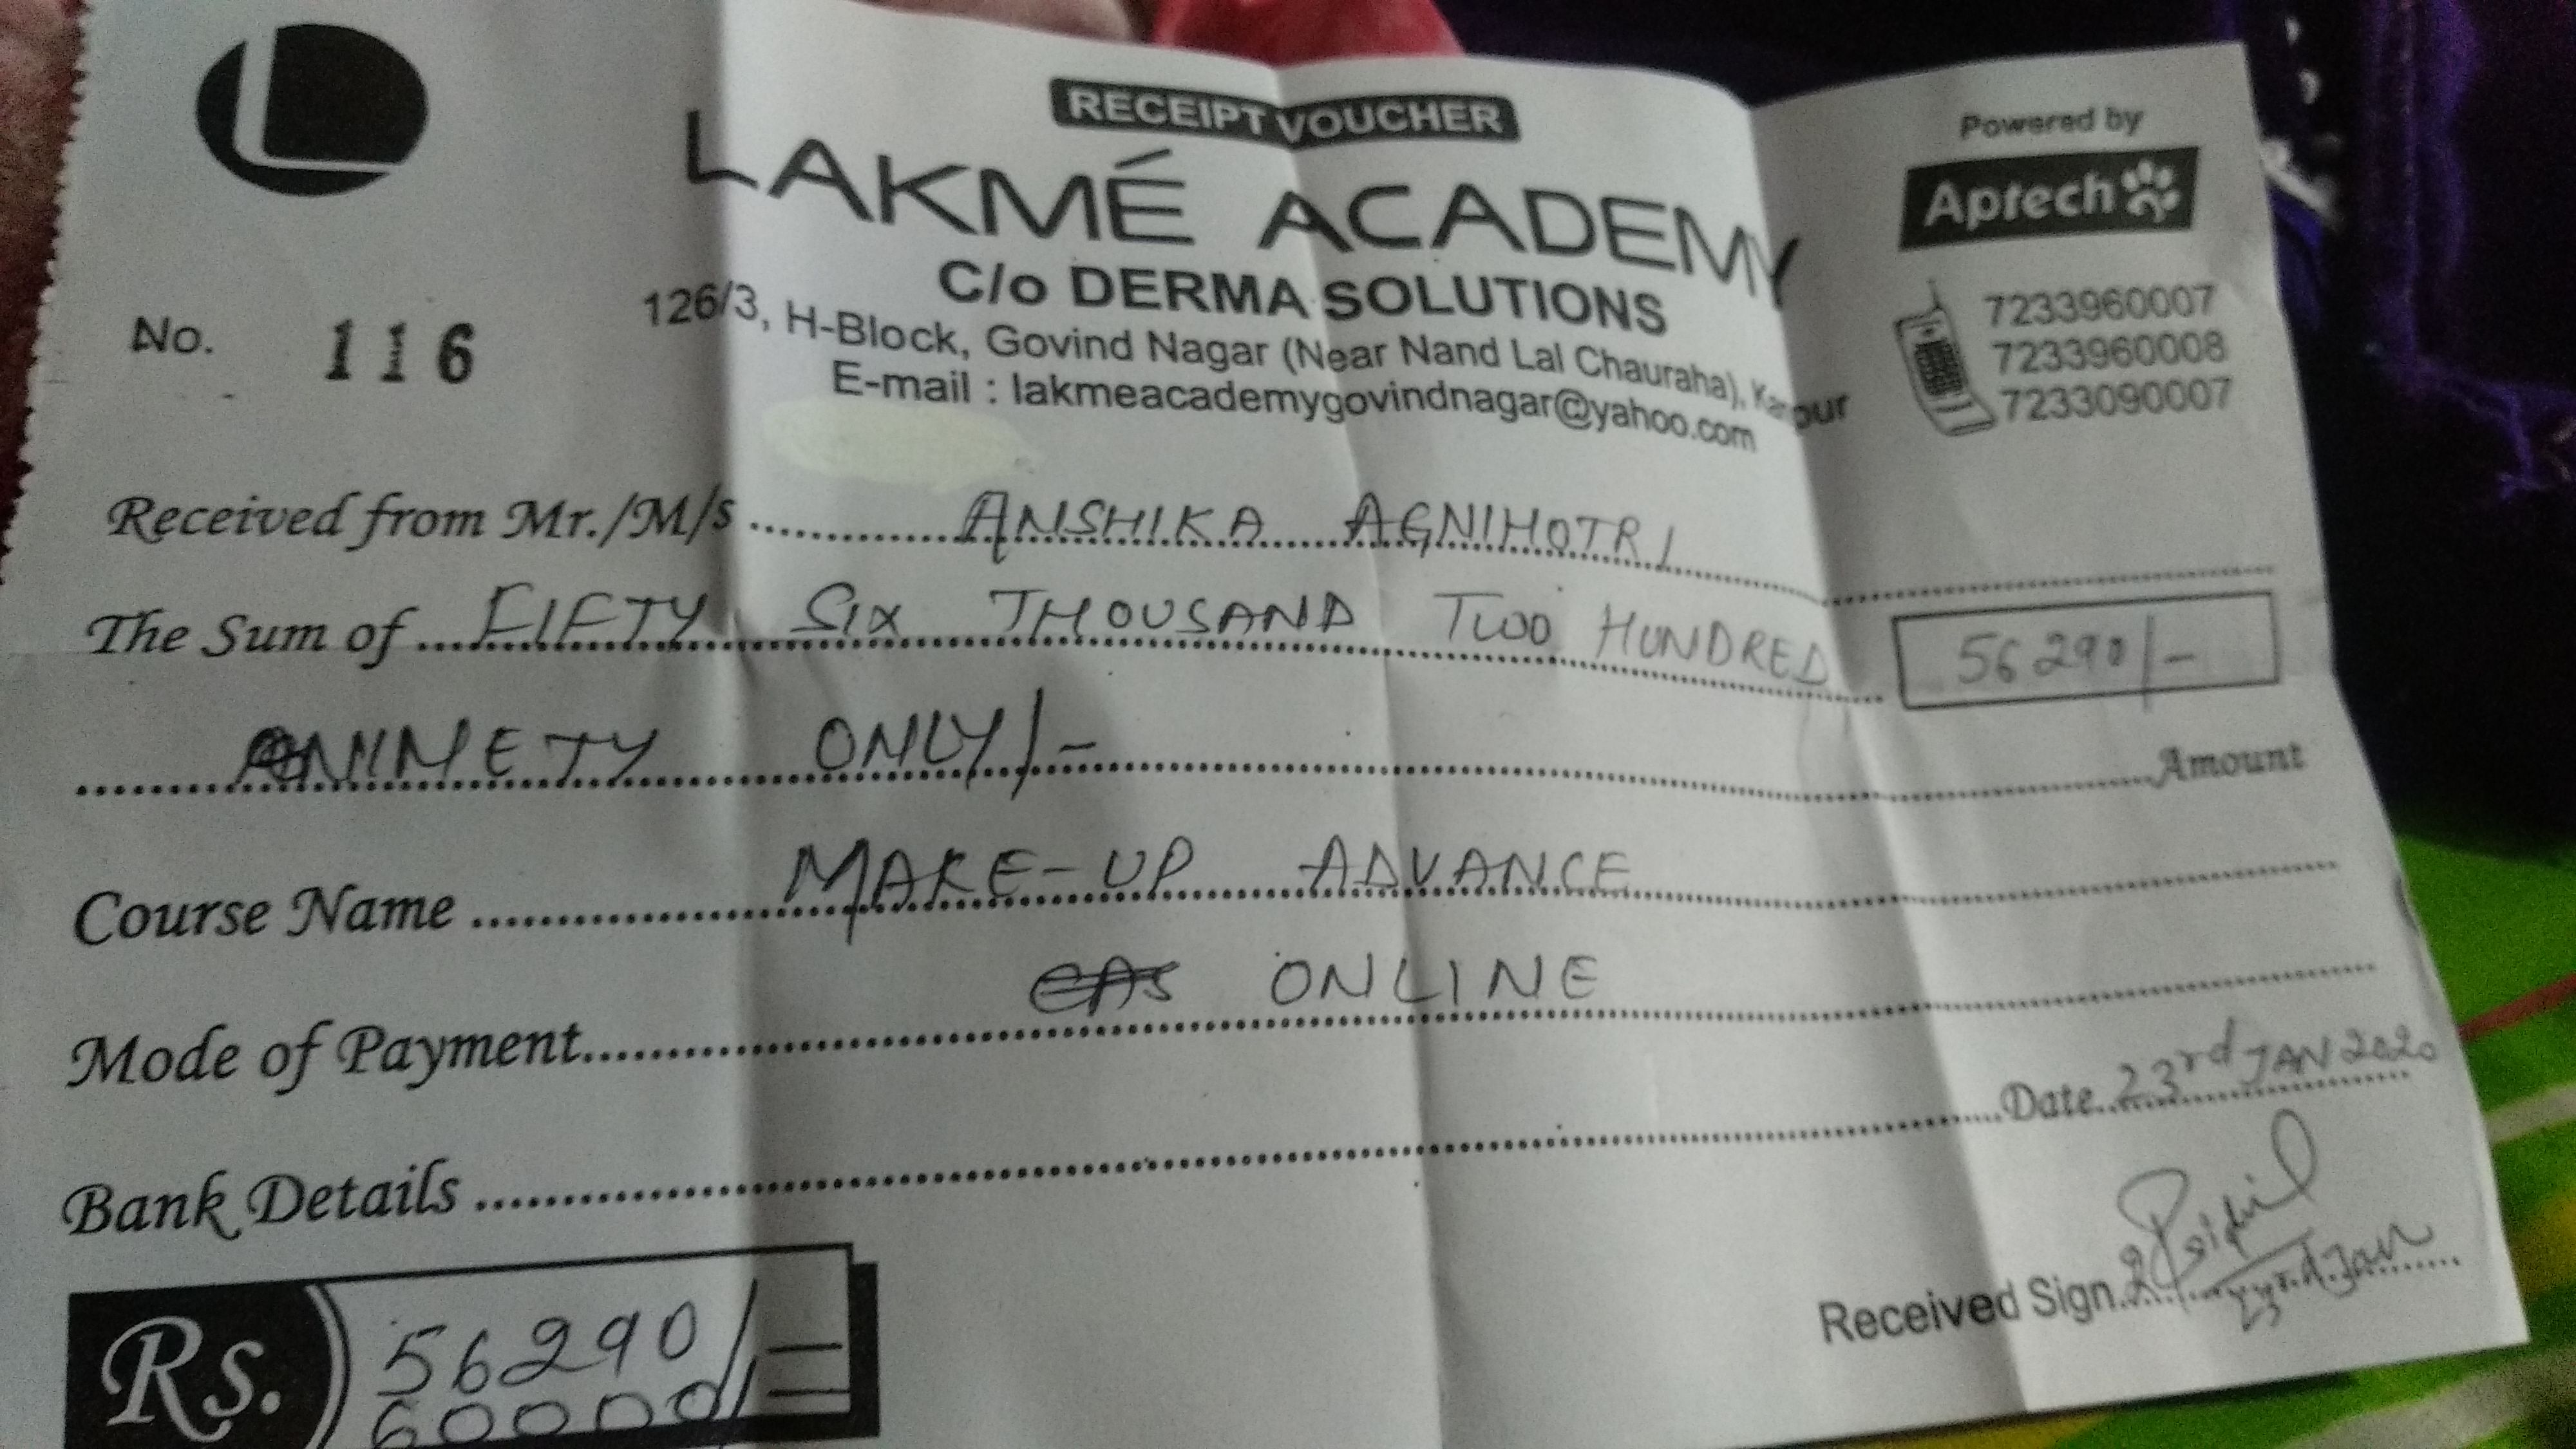 RECEIPT VOUCHER
LAKMÉ ACADEMY
C/o DERMA SOLUTIONS
126/3, H-Block, Govind Nagar (Near Nand Lal Chauraha), Kanpur
E-mail : lakmeacademygovindnagar@yahoo.com
Powered by
Aptech
7233960007
7233960008
7233090007
No. 116
Received from Mr./M/s ANSHIKA AGNIHOTRI
The Sum of FIFTY SIX THOUSAND TWO HUNDRED 56290/-
NINETY ONLY/- Amount
Course Name MAKE-UP ADVANCE
Mode of Payment ONLINE
Date 23rd JAN 2020
Bank Details
Received Sign. 23rd Jan
Rs. 56290/=
60000/=